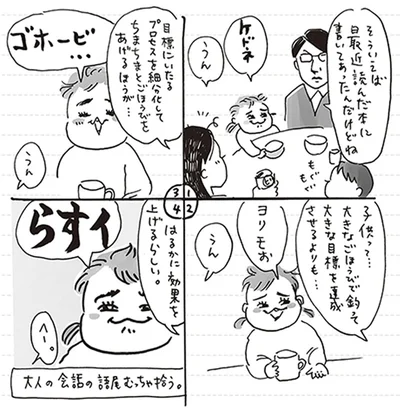 そういえば
最近読んだ本に
書いてあったんだけどね
ケドネ
うん
もぐ
もぐ
1
子供って…
大きなごほうびで釣って
大きな目標を達成
させるよりも…
ヨリモぉ
うん
2
目標にいたる
プロセスを細分化して
ちまちまとごほうびを
あげるほうが…
ゴホービ…
うん
3
はるかに効果を
上げるらしい。
らすィ
へー。
4
大人の会話の語尾むっちゃ拾う。